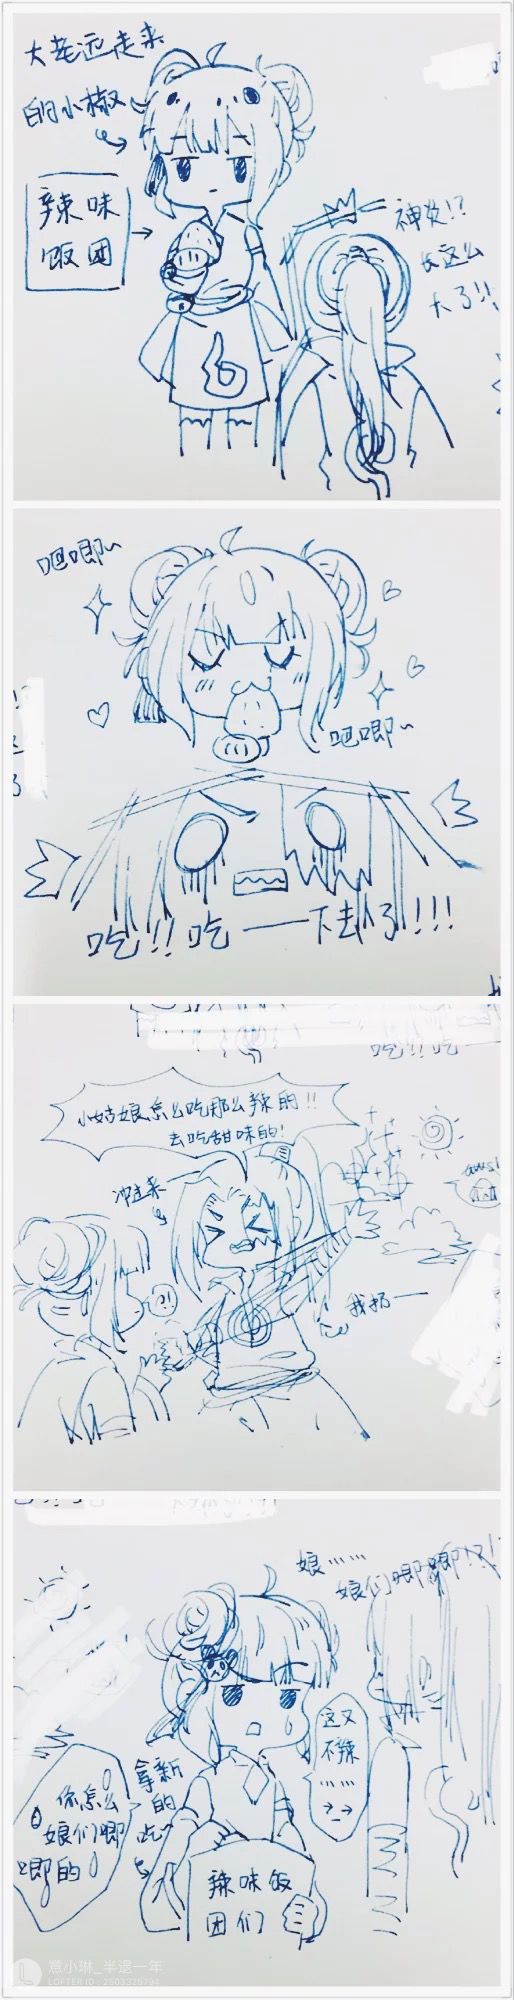 大老远走来
的小椒
辣味
饭团
神炎!?
长这么
大了!!
吧唧~
吧唧~
吃!!吃——下去了!!!
小姑娘怎么吃那么辣的!!
去吃甜味的!
冲过来
?!
我扔——
娘……
娘们唧唧!?!
这又
不辣
……
拿新
的吃
你怎么
娘们唧
唧的
辣味饭
团们
意小琳_半退一年
LOFTER ID: 2503325794